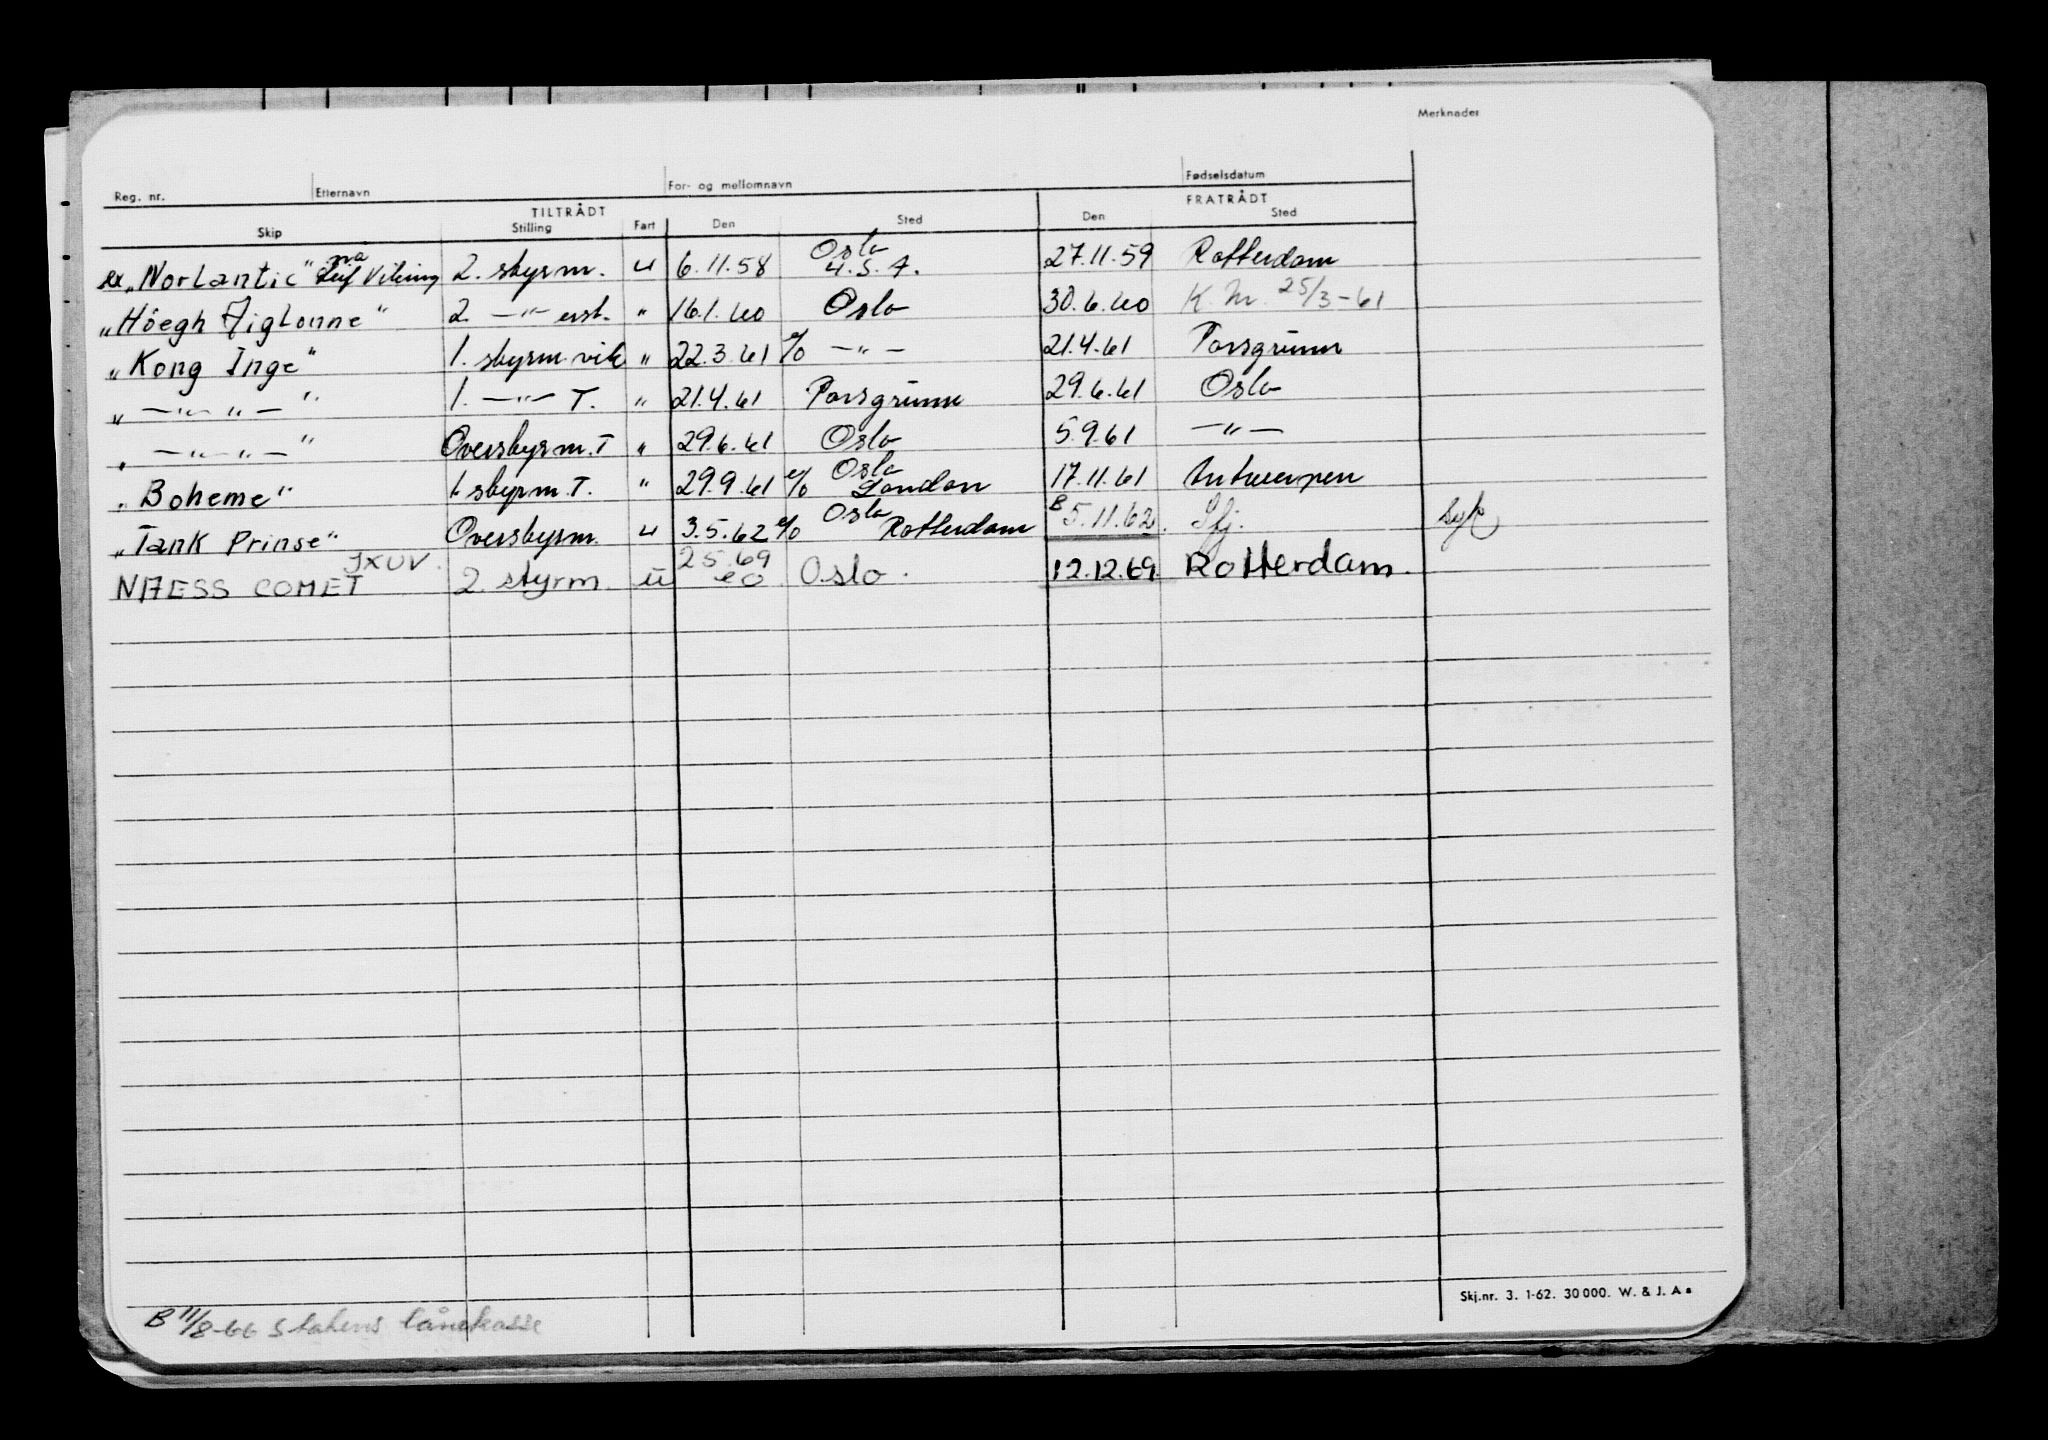 Merknader
Reg. nr. Etternavn For- og mellomnavn Fødselsdatum
TILTRÅDT FRATRÅDT
Skip Stilling Fart Den Sted Den Sted
ex „Norlantic" nå Leif Viking 2. styrm. u 6.11.58 Oslo U.S.A. 27.11.59 Rotterdam
„Höegh Aiglonne" 2. —„— erst. " 16.1.60 Oslo 30.6.60 K.M. 25/3-61
„Kong Inge" 1. styrm. vik " 22.3.61 e/o —„— 21.4.61 Porsgrunn
„ —„— „ — " 1. —„— T. " 21.4.61 Porsgrunn 29.6.61 Oslo
„ —„— „ — " Overstyrm. T " 29.6.61 Oslo 5.9.61 —„—
„Boheme" 1. styrm. T. " 29.9.61 e/o Oslo London 17.11.61 Antwerpen
„Tank Prinse" Overstyrm. u 3.5.62 e/o Oslo Rotterdam B 5.11.62. Sfj. syk
NAESS COMET JXUV. 2. styrm. u 25.69 eo Oslo. 12.12.69. Rotterdam.
Skj.nr. 3. 1-62. 30 000. W. & J. A s
B 11/8-66 Statens lånekasse